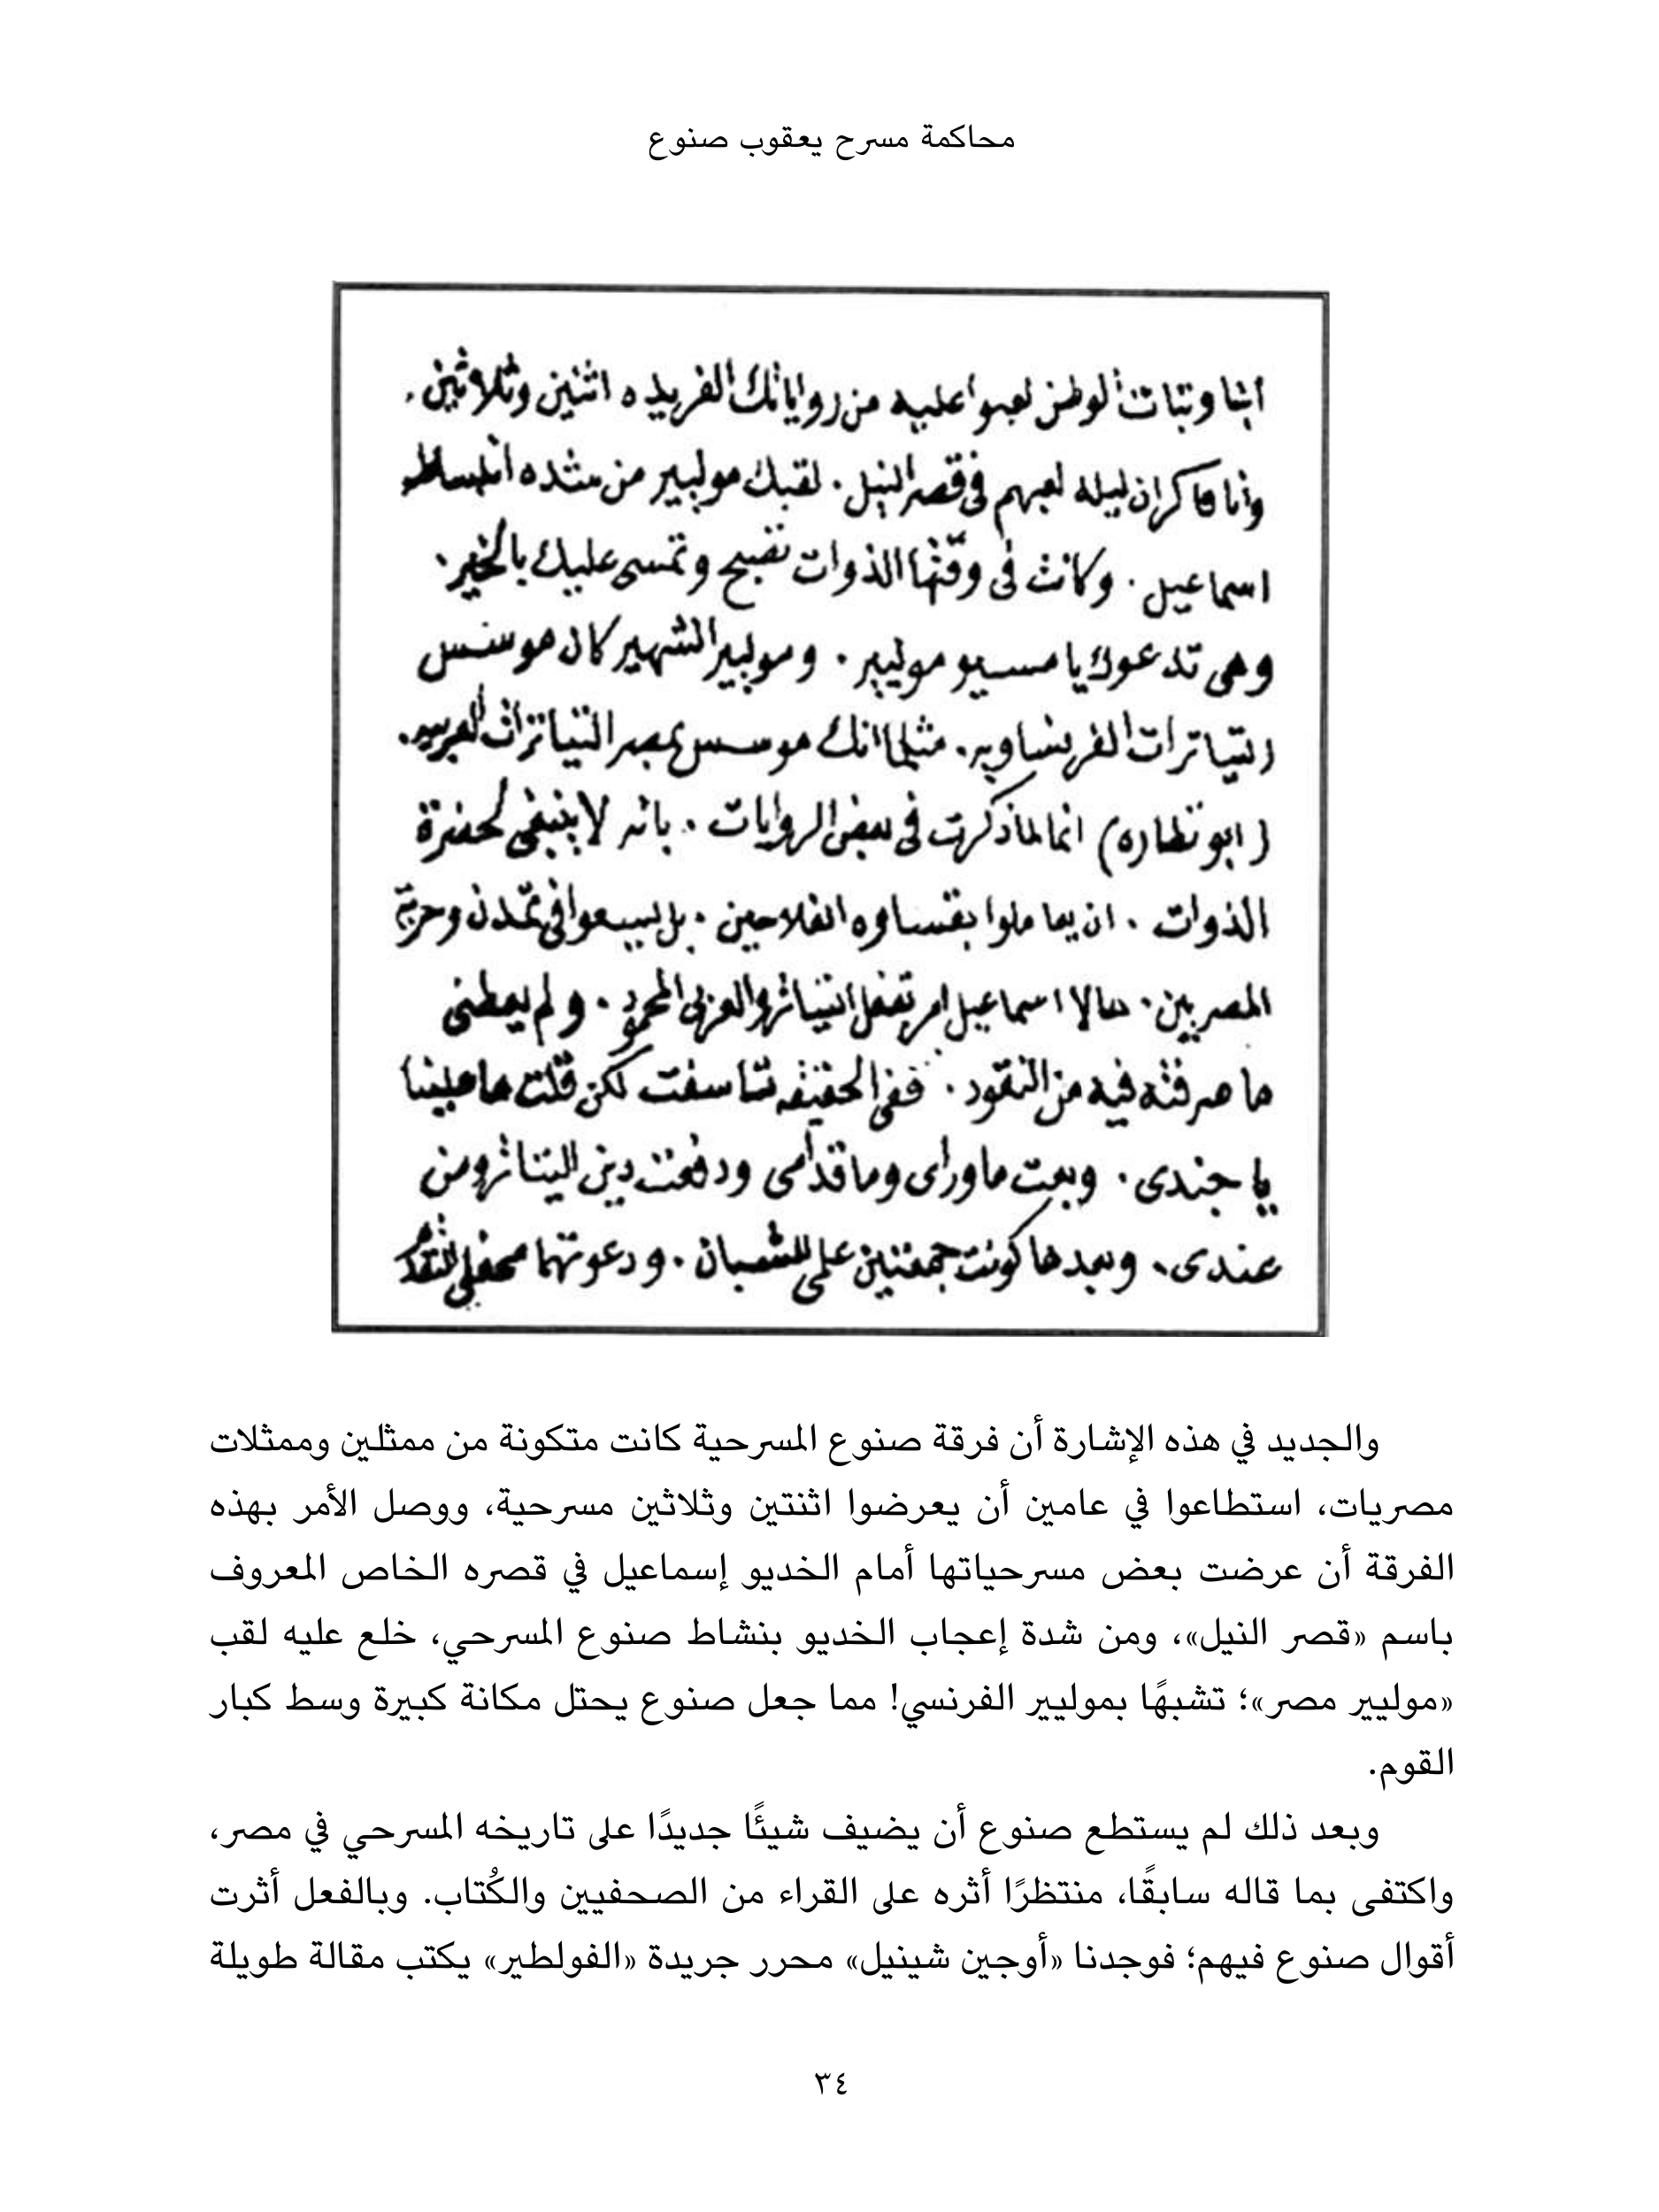 محاكمة مسرح يعقوب صنوع
ابنا وبنات الوطن لعبوا عليه من رواياتك الفريده اثنين وثلاثين.
وانا فاكر ان ليله لعبهم في قصر النيل. لقبك موليير من شده انبساطه
اسماعيل. وكانت في وقتها الذوات تصبح وتمسى عليك بالخير.
وهى تدعوك يا مسيو موليير. وموليير الشهير كان موسس
التياترات الفرنساويه. مثلما انك موسس بمصر التياترات العربيه.
(ابو نظاره) انما لما ذكرت في بعض الروايات. بانه لا ينبغى لحضرة
الذوات. ان يعاملوا بقساوه الفلاحين. بل ليسعوا في تمدن وحرية
المصريين. حالا اسماعيل امر بقفل التياترو العربى المحمود. ولم يعطنى
ما صرفته فيه من النقود. ففى الحقيقه تاسفت لكن قلت ما علينا
يا جندى. وبعت ماوراى وما قدامى ودفعت دين التياترو من
عندى. وبعدها كونت جمعتين على الشبان. ودعوتها محفل التقدم
والجديد في هذه الإشارة أن فرقة صنوع المسرحية كانت متكونة من ممثلين وممثلات
مصريات، استطاعوا في عامين أن يعرضوا اثنتين وثلاثين مسرحية، ووصل الأمر بهذه
الفرقة أن عرضت بعض مسرحياتها أمام الخديو إسماعيل في قصره الخاص المعروف
باسم «قصر النيل»، ومن شدة إعجاب الخديو بنشاط صنوع المسرحي، خلع عليه لقب
«موليير مصر»؛ تشبهًا بموليير الفرنسي! مما جعل صنوع يحتل مكانة كبيرة وسط كبار
القوم.
وبعد ذلك لم يستطع صنوع أن يضيف شيئًا جديدًا على تاريخه المسرحي في مصر،
واكتفى بما قاله سابقًا، منتظرًا أثره على القراء من الصحفيين والكُتاب. وبالفعل أثرت
أقوال صنوع فيهم؛ فوجدنا «أوجين شينيل» محرر جريدة «الفولطير» يكتب مقالة طويلة
٣٤